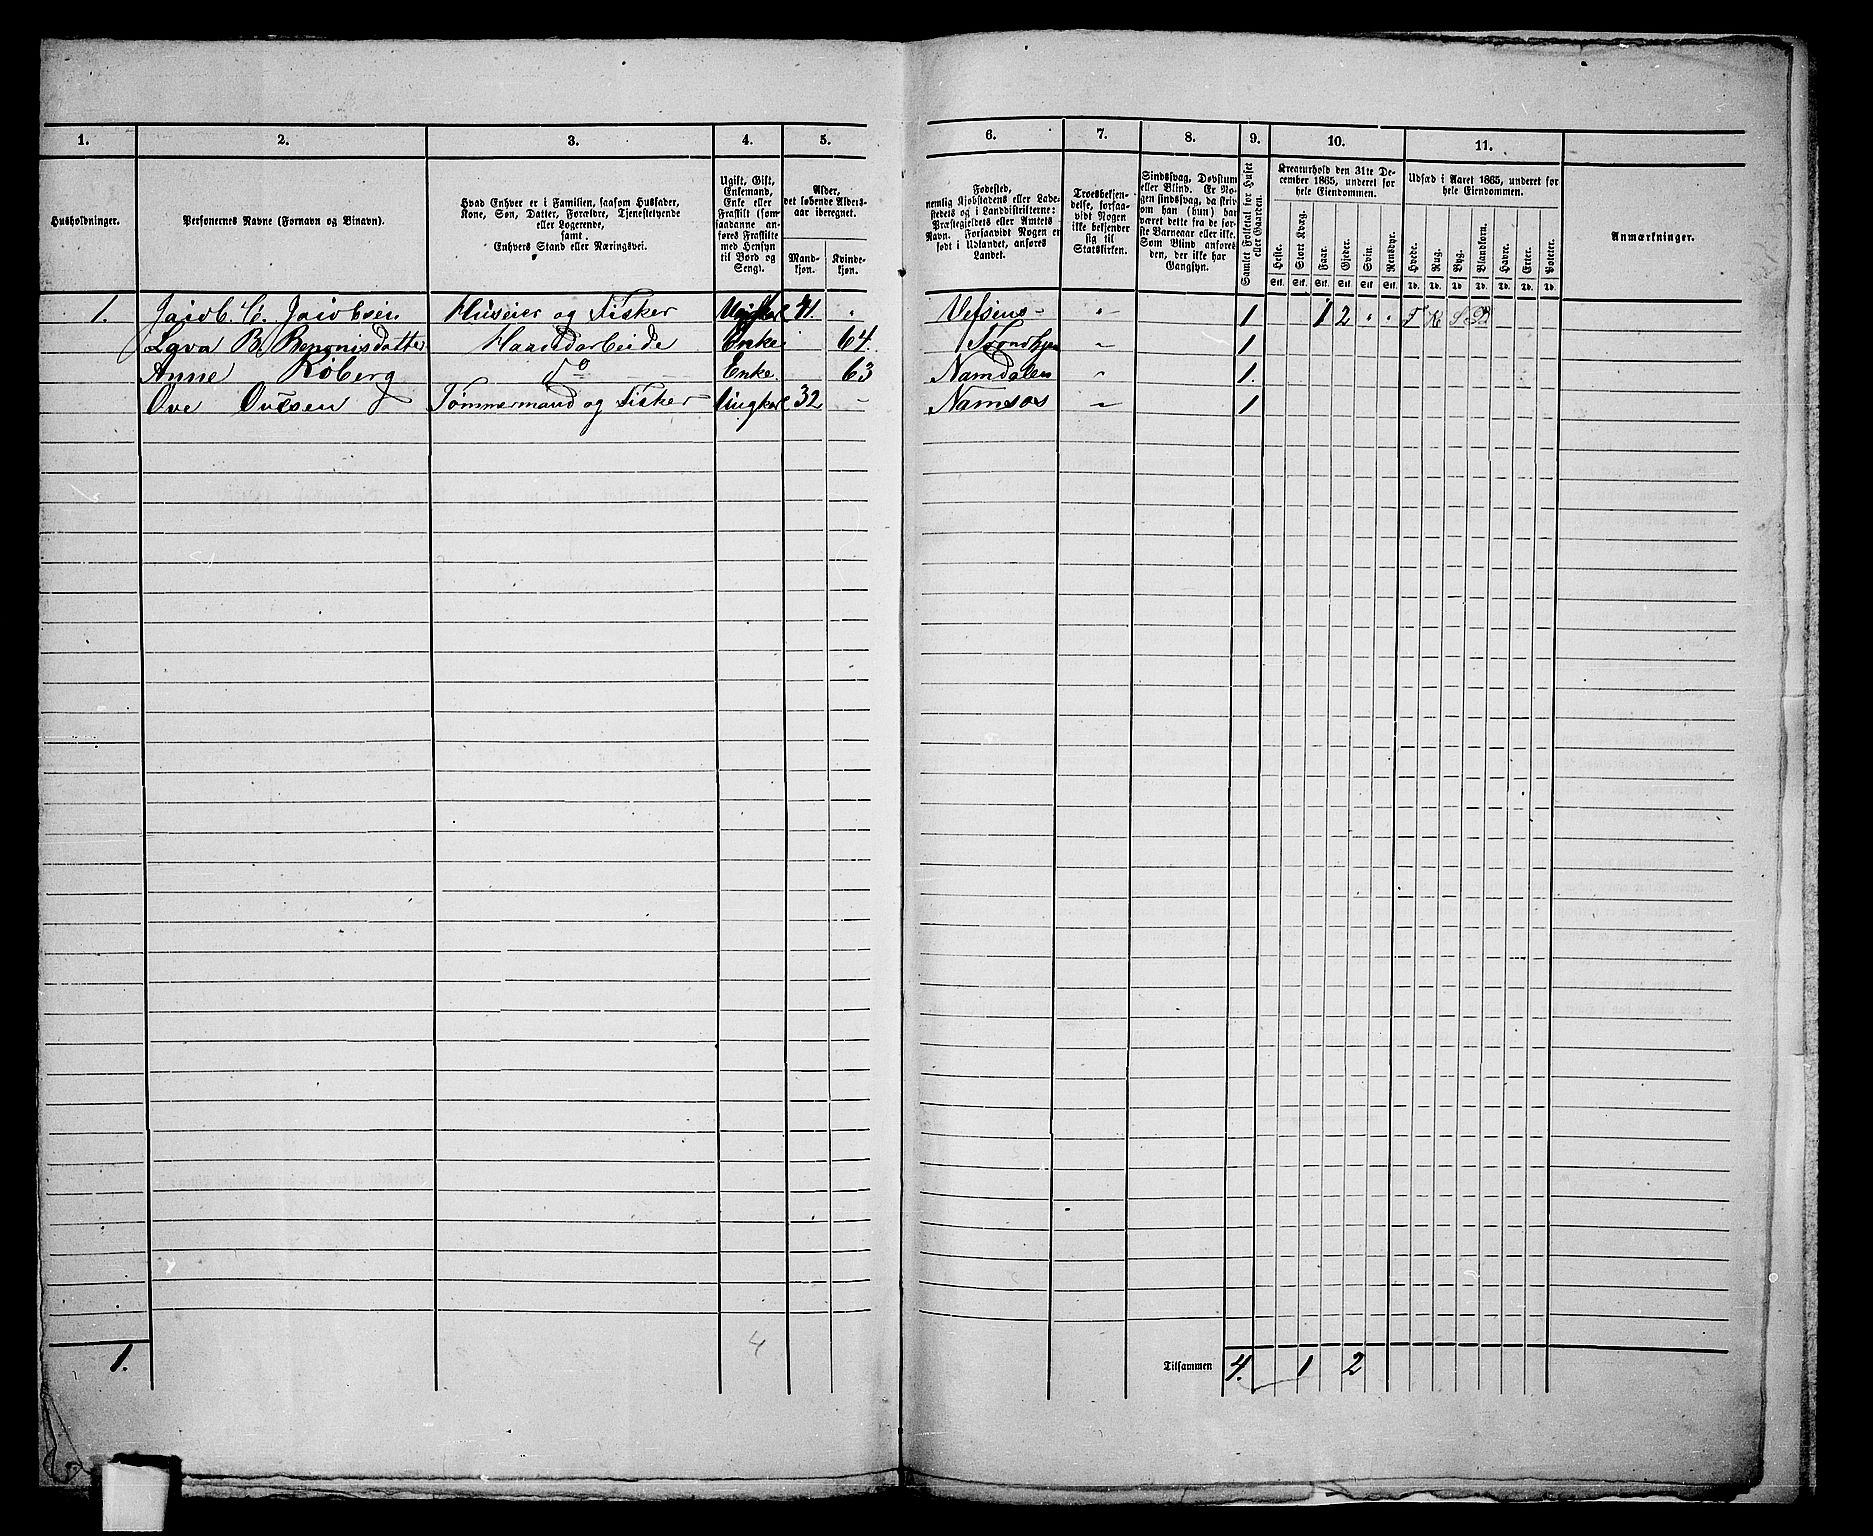 1. 2. 3. 4. 5. 6. 7. 8. 9. 10. 11.
Husholdninger.
Personernes Navne (Fornavn og Binavn).
Hvad Enhver er i Familien, saasom Husfader,
Kone, Søn, Datter, Forældre, Tjenestetyende
eller Logerende,
samt
Enhvers Stand eller Næringsvei.
Ugift, Gift,
Enkemand,
Enke eller
Fraskilt (som
saadanne an-
føres Fraskilte
med Hensyn
til Bord og
Seng).
Alder,
det løbende Alders-
aar iberegnet.
Mand-
kjøn.
Kvinde-
kjøn.
Fødested,
nemlig Kjøbstadens eller Lade-
stedets og i Landdistrikterne:
Præstegjeldets eller Amtets
Navn. Forsaavidt Nogen er
født i Udlandet, anføres
Landet.
Troesbekjen-
delse, forsaa-
vidt Nogen
ikke bekjender
sig til
Statskirken.
Sindssvag, Døvstum
eller Blind. Er No-
gen sindssvag, da skriv
om han (hun) har
været dette fra de før-
ste Barneaar eller ikke.
Som Blind anføres
den, der ikke har
Gangsyn.
Samlet Folketal for Huset
eller Gaarden.
Kreaturhold den 31te De-
cember 1865, underet for
hele Eiendommen.
Heste. Stort Kvæg. Faar. Gjeder. Svin. Rensdyr.
Stk. Stk. Stk. Stk. Stk. Stk.
Udsæd i Aaret 1865, underet for
hele Eiendommen.
Hvede. Rug. Byg. Blandkorn. Havre. Erter. Poteter.
Td. Td. Td. Td. Td. Td. Td.
Anmærkninger.
1. Jacob. C. Jacobsen Huseier og Fisker Ungkarl 41. " Vefsens " 1 1 2 " "
B. Benonisdatter Haandarbeide Enke 64. Trondhjem " 1
Anne Röberg Do Enke. 63 Namdalen " 1.
Ove Ovesen Tømmermand og Fisker Ungkarl 32 - Namsos " 1
1. 4 Tilsammen 4. 1 2